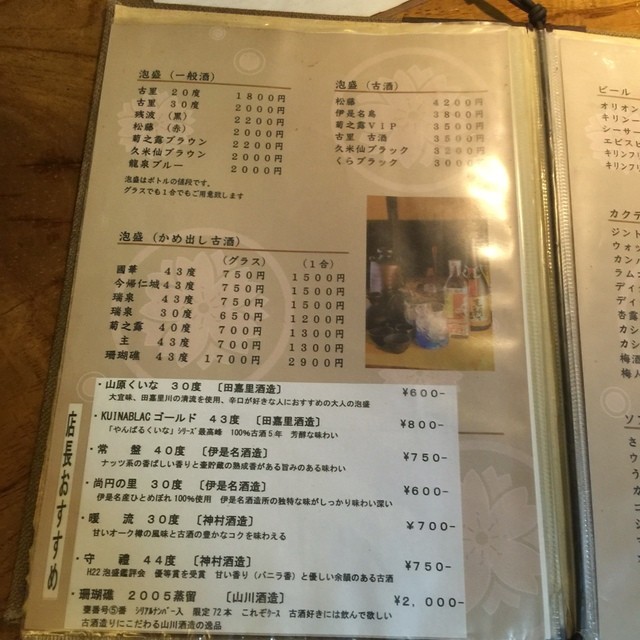 泡盛(一般酒)
古里 20度 1800円
古里 30度 2000円
残波(黒) 2200円
松藤(赤) 2000円
菊之露ブラウン 2200円
久米仙ブラウン 2000円
龍泉ブルー 2000円
泡盛はボトルの値段です。
グラスでも1合でもご用意致します
泡盛(古酒)
松藤 4200円
伊是名島 3800円
菊之露VIP 3500円
古里 古酒 3500円
久米仙ブラック 3200円
くらブラック 3000円
泡盛(かめ出し古酒)
(グラス) (1合)
國華 43度 750円 1500円
今帰仁城 43度 750円 1500円
瑞泉 43度 750円 1500円
瑞泉 30度 650円 1200円
菊之露 40度 700円 1300円
主 43度 700円 1300円
珊瑚礁 43度 1700円 2900円
店長おすすめ
・山原くいな 30度 〔田嘉里酒造〕 ¥600-
大宜味、田嘉里川の清流を使用、辛口が好きな人におすすめの大人の泡盛
・KUINABLACゴールド 43度 〔田嘉里酒造〕 ¥800-
「やんばるくいな」ｼﾘｰｽﾞ最高峰 100%古酒5年 芳醇な味わい
・常 盤 40度 〔伊是名酒造〕 ¥750-
ナッツ系の香ばしい香りと壷貯蔵の熟成香がある旨みのある味わい
・尚円の里 30度 〔伊是名酒造〕 ¥600-
伊是名産ひとめぼれ100%使用 伊是名酒造所の独特な味がしっかり味わい深い
・暖 流 30度 〔神村酒造〕 ¥700-
甘いオーク樽の風味と古酒の豊かなコクを味わえる
・守 禮 44度 〔神村酒造〕 ¥750-
H22泡盛鑑評会 優等賞を受賞 甘い香り(バニラ香)と優しい余韻のある古酒
・珊瑚礁 2005蒸留 〔山川酒造〕 ¥2,000-
甕番号⑤番 ｼﾘｱﾙﾅﾝﾊﾞｰ入 限定72本 これぞｸｰｽ 古酒好きには飲んで欲しい
古酒造りにこだわる山川酒造の逸品
ビール
オリオン
キリンー
シーサー
エビスビ
キリンフリ
カクテ
ジント
ウォッ
カンパ
ラムコ
ディ
ディ
杏露
カシ
カシ
梅酒
梅ハ
ソフ
さ
ウ
う
コ
ゴ
シ